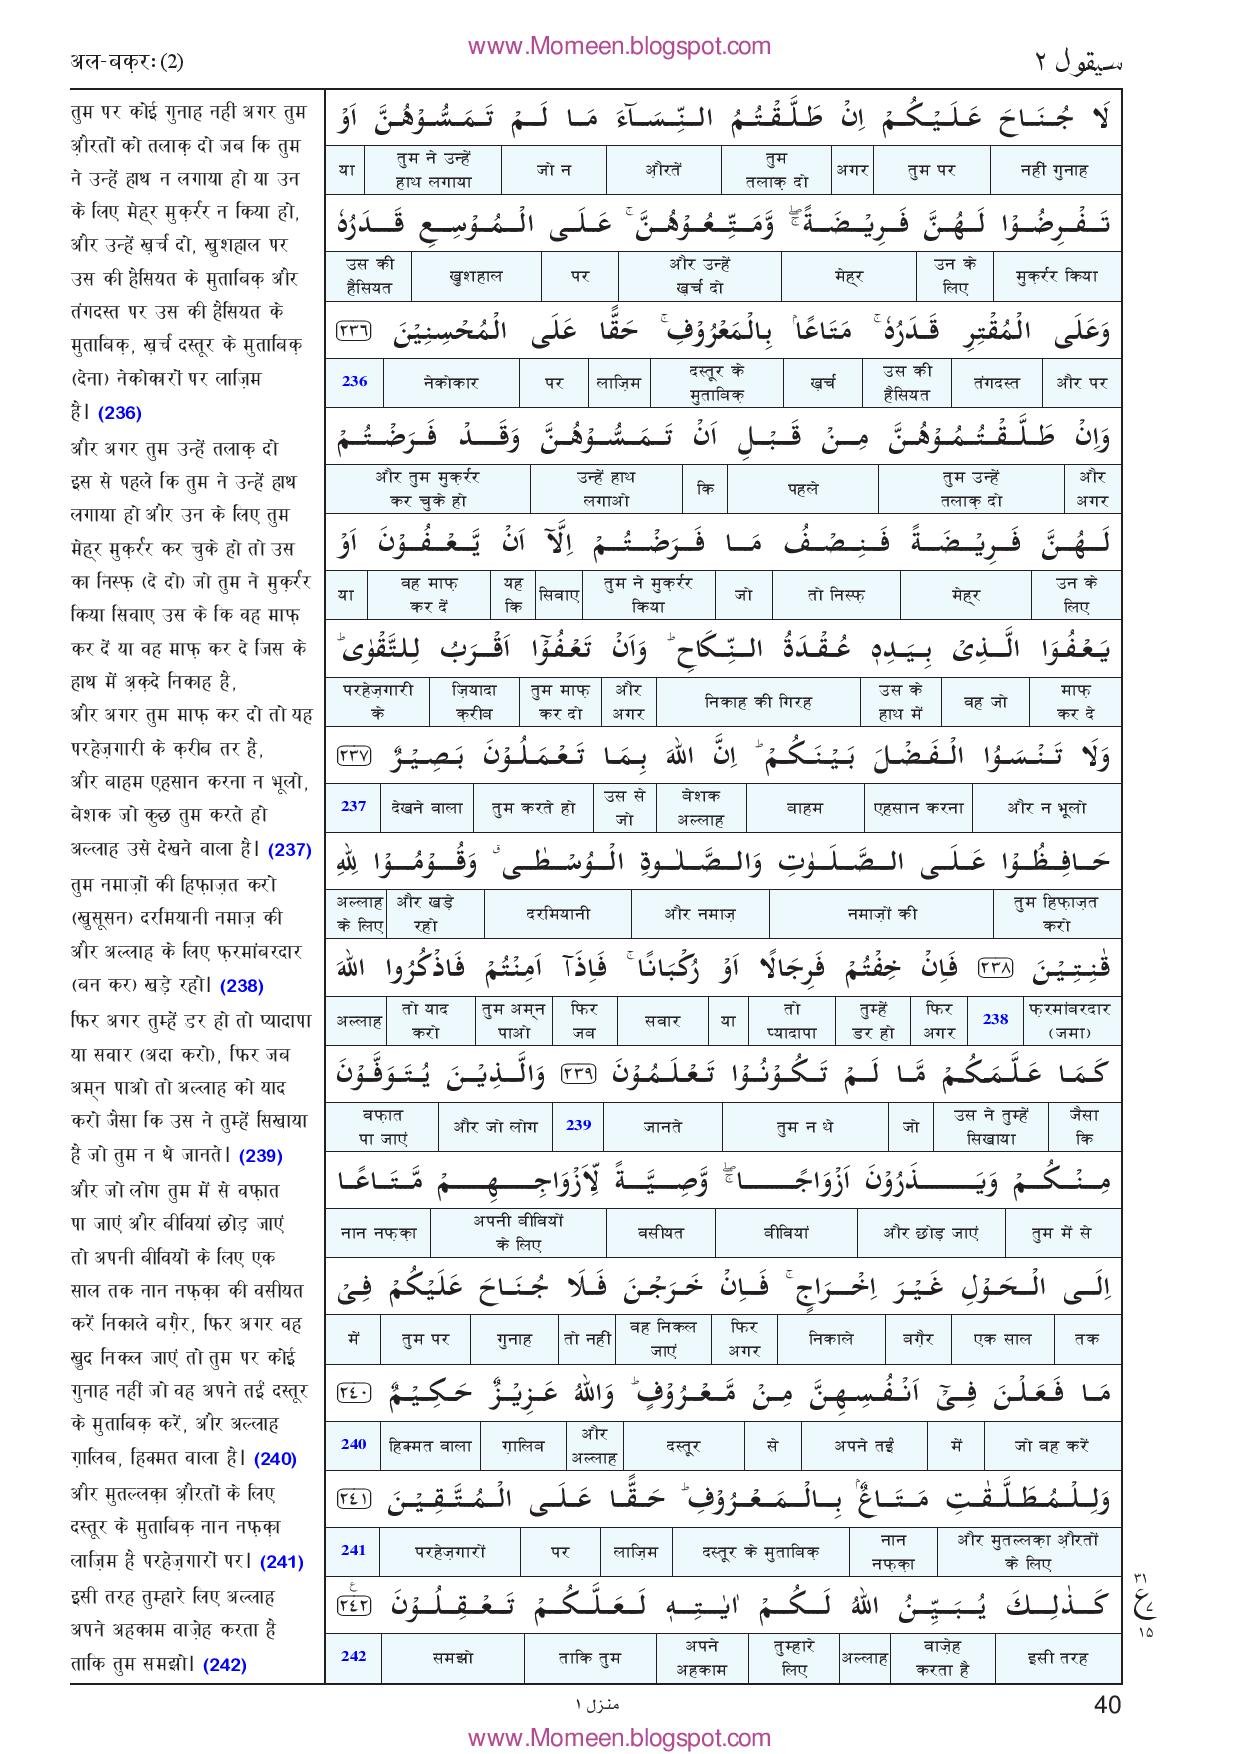 www.Momeen.blogspot.com
अल-बक़रः (2)
سيقول ٢
तुम पर कोई गुनाह नहीं अगर तुम
औ़रतों को तलाक़ दो जब कि तुम
ने उन्हें हाथ न लगाया हो या उन
के लिए मेह्र मुक़र्रर न किया हो,
और उन्हें ख़र्च दो, ख़ुशहाल पर
उस की हैसियत के मुताबिक़ और
तंगदस्त पर उस की हैसियत के
मुताबिक़, ख़र्च दस्तूर के मुताबिक़
(देना) नेकोकारों पर लाज़िम
है। (236)
और अगर तुम उन्हें तलाक़ दो
इस से पहले कि तुम ने उन्हें हाथ
लगाया हो और उन के लिए तुम
मेह्र मुक़र्रर कर चुके हो तो उस
का निस्फ़ (दे दो) जो तुम ने मुक़र्रर
किया सिवाए उस के कि वह माफ़
कर दें या वह माफ़ कर दे जिस के
हाथ में अ़क़्दे निकाह है,
और अगर तुम माफ़ कर दो तो यह
परहेज़गारी के क़रीब तर है,
और बाहम एहसान करना न भूलो,
बेशक जो कुछ तुम करते हो
अल्लाह उसे देखने वाला है। (237)
तुम नमाज़ों की हिफ़ाज़त करो
(ख़ुसूसन) दरमियानी नमाज़ की
और अल्लाह के लिए फ़रमांबरदार
(बन कर) खड़े रहो। (238)
फिर अगर तुम्हें डर हो तो प्यादापा
या सवार (अदा करो), फिर जब
अम्न पाओ तो अल्लाह को याद
करो जैसा कि उस ने तुम्हें सिखाया
है जो तुम न थे जानते। (239)
और जो लोग तुम में से वफ़ात
पा जाएं और बीवियां छोड़ जाएं
तो अपनी बीवियों के लिए एक
साल तक नान नफ़्क़ा की वसीयत
करें निकाले बग़ैर, फिर अगर वह
ख़ुद निकल जाएं तो तुम पर कोई
गुनाह नहीं जो वह अपने तईं दस्तूर
के मुताबिक़ करें, और अल्लाह
ग़ालिब, हिक्मत वाला है। (240)
और मुतल्लक़ा औ़रतों के लिए
दस्तूर के मुताबिक़ नान नफ़्क़ा
लाज़िम है परहेज़गारों पर। (241)
इसी तरह तुम्हारे लिए अल्लाह
अपने अहकाम वाज़ेह करता है
ताकि तुम समझो। (242)
لَا جُنَاحَ عَلَيْكُمْ اِنْ طَلَّقْتُمُ النِّسَآءَ مَا لَمْ تَمَسُّوْهُنَّ اَوْ
नहीं गुनाह तुम पर अगर तुम तलाक़ दो औ़रतें जो न तुम ने उन्हें हाथ लगाया या
تَفْرِضُوْا لَهُنَّ فَرِيْضَةً ۖۚ وَّمَتِّعُوْهُنَّ ۚ عَلَى الْمُوْسِعِ قَدَرُهٗ
मुक़र्रर किया उन के लिए मेह्र और उन्हें ख़र्च दो पर ख़ुशहाल उस की हैसियत
وَعَلَى الْمُقْتِرِ قَدَرُهٗ ۚ مَتَاعًاۢ بِالْمَعْرُوْفِ ۚ حَقًّا عَلَى الْمُحْسِنِيْنَ ٢٣٦
और पर तंगदस्त उस की हैसियत ख़र्च दस्तूर के मुताबिक़ लाज़िम पर नेकोकार 236
وَاِنْ طَلَّقْتُمُوْهُنَّ مِنْ قَبْلِ اَنْ تَمَسُّوْهُنَّ وَقَدْ فَرَضْتُمْ
और अगर तुम उन्हें तलाक़ दो पहले कि उन्हें हाथ लगाओ और तुम मुक़र्रर कर चुके हो
لَهُنَّ فَرِيْضَةً فَنِصْفُ مَا فَرَضْتُمْ اِلَّآ اَنْ يَّعْفُوْنَ اَوْ
उन के लिए मेह्र तो निस्फ़ जो तुम ने मुक़र्रर किया सिवाए यह कि वह माफ़ कर दें या
يَعْفُوَا الَّذِىْ بِيَدِهٖ عُقْدَةُ النِّكَاحِ ؕ وَاَنْ تَعْفُوْٓا اَقْرَبُ لِلتَّقْوٰى ؕ
माफ़ कर दे वह जो उस के हाथ में निकाह की गिरह और अगर तुम माफ़ कर दो ज़ियादा क़रीब परहेज़गारी के
وَلَا تَنْسَوُا الْفَضْلَ بَيْنَكُمْ ؕ اِنَّ اللهَ بِمَا تَعْمَلُوْنَ بَصِيْرٌ ٢٣٧
और न भूलो एहसान करना बाहम बेशक अल्लाह उस से जो तुम करते हो देखने वाला 237
حَافِظُوْا عَلَى الصَّلَوٰتِ وَالصَّلٰوةِ الْوُسْطٰى ۗ وَقُوْمُوْا لِلّٰهِ
तुम हिफ़ाज़त करो नमाज़ों की और नमाज़ दरमियानी और खड़े रहो अल्लाह के लिए
قٰنِتِيْنَ ٢٣٨ فَاِنْ خِفْتُمْ فَرِجَالًا اَوْ رُكْبَانًا ۚ فَاِذَآ اَمِنْتُمْ فَاذْكُرُوا اللهَ
फ़रमांबरदार (जमा) 238 फिर अगर तुम्हें डर हो तो प्यादापा या सवार फिर जब तुम अम्न पाओ तो याद करो अल्लाह
كَمَا عَلَّمَكُمْ مَّا لَمْ تَكُوْنُوْا تَعْلَمُوْنَ ٢٣٩ وَالَّذِيْنَ يُتَوَفَّوْنَ
जैसा कि उस ने तुम्हें सिखाया जो तुम न थे जानते 239 और जो लोग वफ़ात पा जाएं
مِنْكُمْ وَيَذَرُوْنَ اَزْوَاجًا ۖۚ وَّصِيَّةً لِّاَزْوَاجِهِمْ مَّتَاعًا
तुम में से और छोड़ जाएं बीवियां वसीयत अपनी बीवियों के लिए नान नफ़्क़ा
اِلَى الْحَوْلِ غَيْرَ اِخْرَاجٍ ۚ فَاِنْ خَرَجْنَ فَلَا جُنَاحَ عَلَيْكُمْ فِىْ
तक एक साल बग़ैर निकाले फिर अगर वह निकल जाएं तो नहीं गुनाह तुम पर में
مَا فَعَلْنَ فِىْٓ اَنْفُسِهِنَّ مِنْ مَّعْرُوْفٍ ؕ وَاللهُ عَزِيْزٌ حَكِيْمٌ ٢٤٠
जो वह करें में अपने तईं से दस्तूर और अल्लाह ग़ालिब हिक्मत वाला 240
وَلِلْمُطَلَّقٰتِ مَتَاعٌۢ بِالْمَعْرُوْفِ ؕ حَقًّا عَلَى الْمُتَّقِيْنَ ٢٤١
और मुतल्लक़ा औ़रतों के लिए नान नफ़्क़ा दस्तूर के मुताबिक़ लाज़िम पर परहेज़गारों 241
كَذٰلِكَ يُبَيِّنُ اللهُ لَكُمْ اٰيٰتِهٖ لَعَلَّكُمْ تَعْقِلُوْنَ ٢٤٢
इसी तरह वाज़ेह करता है अल्लाह तुम्हारे लिए अपने अहकाम ताकि तुम समझो 242
٣١
ع
١٥
منزل ١
40
www.Momeen.blogspot.com